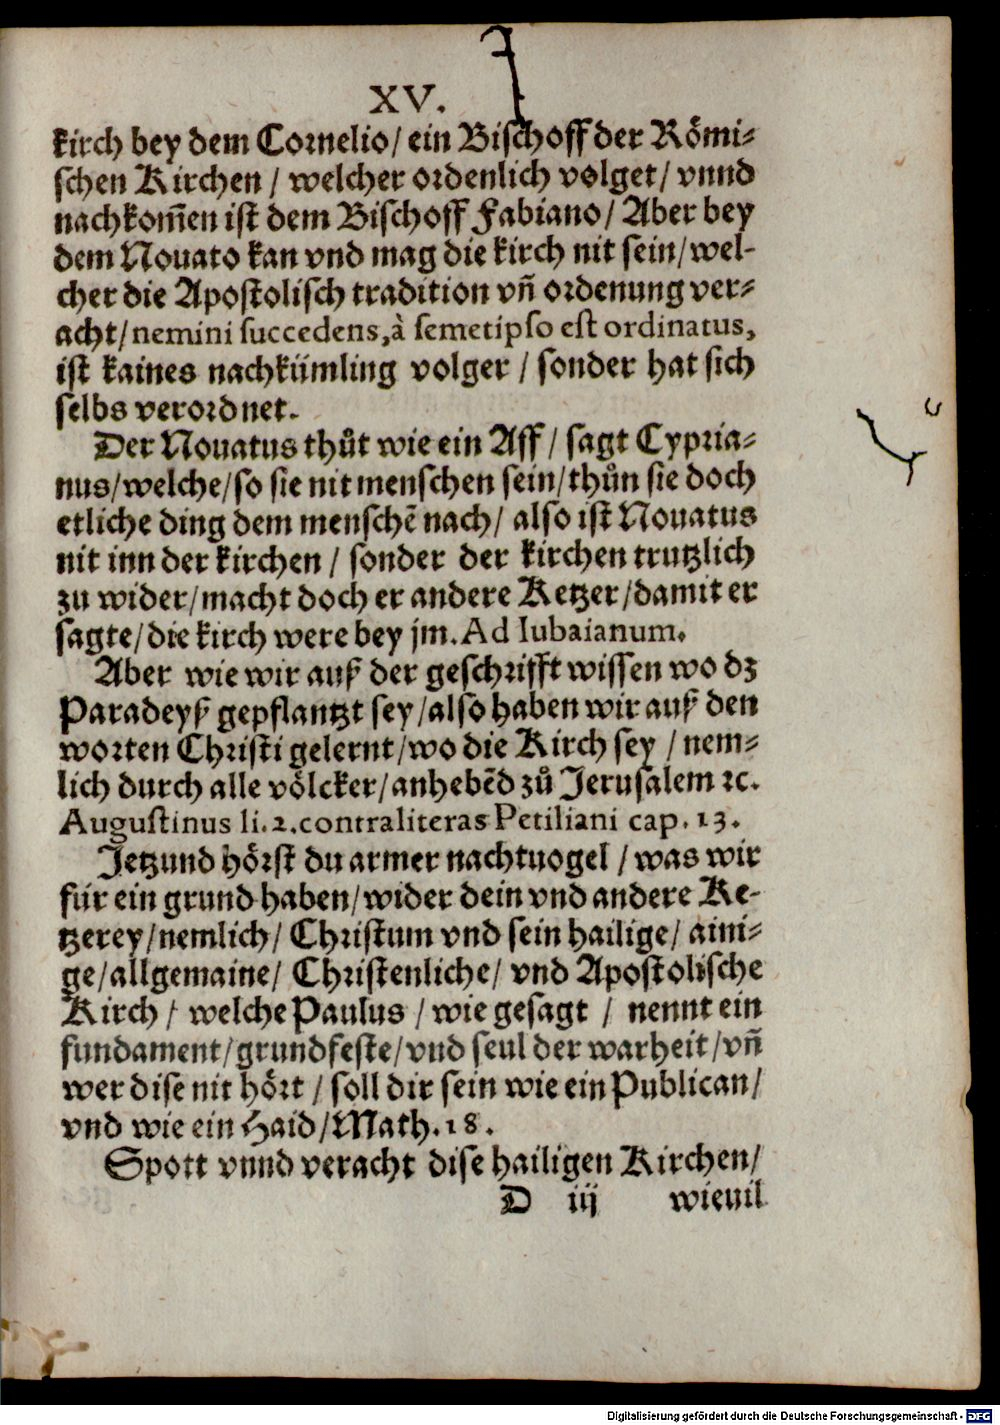 XV.
kirch bey dem Cornelio/ ein Bischoff der Römi⸗
schen Kirchen / welcher ordenlich volget/ vnnd
nachkom̃en ist dem Bischoff Fabiano/ Aber bey
dem Nouato kan vnd mag die kirch nit sein/ wel⸗
cher die Apostolisch tradition vñ ordenung ver⸗
acht/ nemini succedens, à semetipso est ordinatus,
ist kaines nachkümling volger / sonder hat sich
selbs verordnet.
Der Nouatus thůt wie ein Aff / sagt Cypria⸗
nus/welche/so sie nit menschen sein/thůn sie doch
etliche ding dem menschẽ nach/ also ist Nouatus
nit inn der kirchen / sonder der kirchen trutzlich
zu wider/macht doch er andere Ketzer/damit er
sagte/die kirch were bey jm. Ad Iubaianum.
Aber wie wir auß der geschrifft wissen wo dz
Paradeyß gepflantzt sey/also haben wir auß den
worten Christi gelernt/wo die Kirch sey / nem⸗
lich durch alle völcker/anhebẽd zů Jerusalem ꝛc.
Augustinus li. 2. contra literas Petiliani cap. 13.
Jetzund hörst du armer nachtuogel / was wir
für ein grund haben/wider dein vnd andere Ke⸗
tzerey/nemlich/ Christum vnd sein hailige/ aini⸗
ge/allgemaine/ Christenliche/ vnd Apostolische
Kirch / welche Paulus / wie gesagt / nennt ein
fundament/grundfeste/vnd seul der warheit/vñ
wer dise nit hört / soll dir sein wie ein Publican/
vnd wie ein Haid/Math.18.
Spott vnnd veracht dise hailigen Kirchen/
D iij wieuil
Digitalisierung gefördert durch die Deutsche Forschungsgemeinschaft - DFG